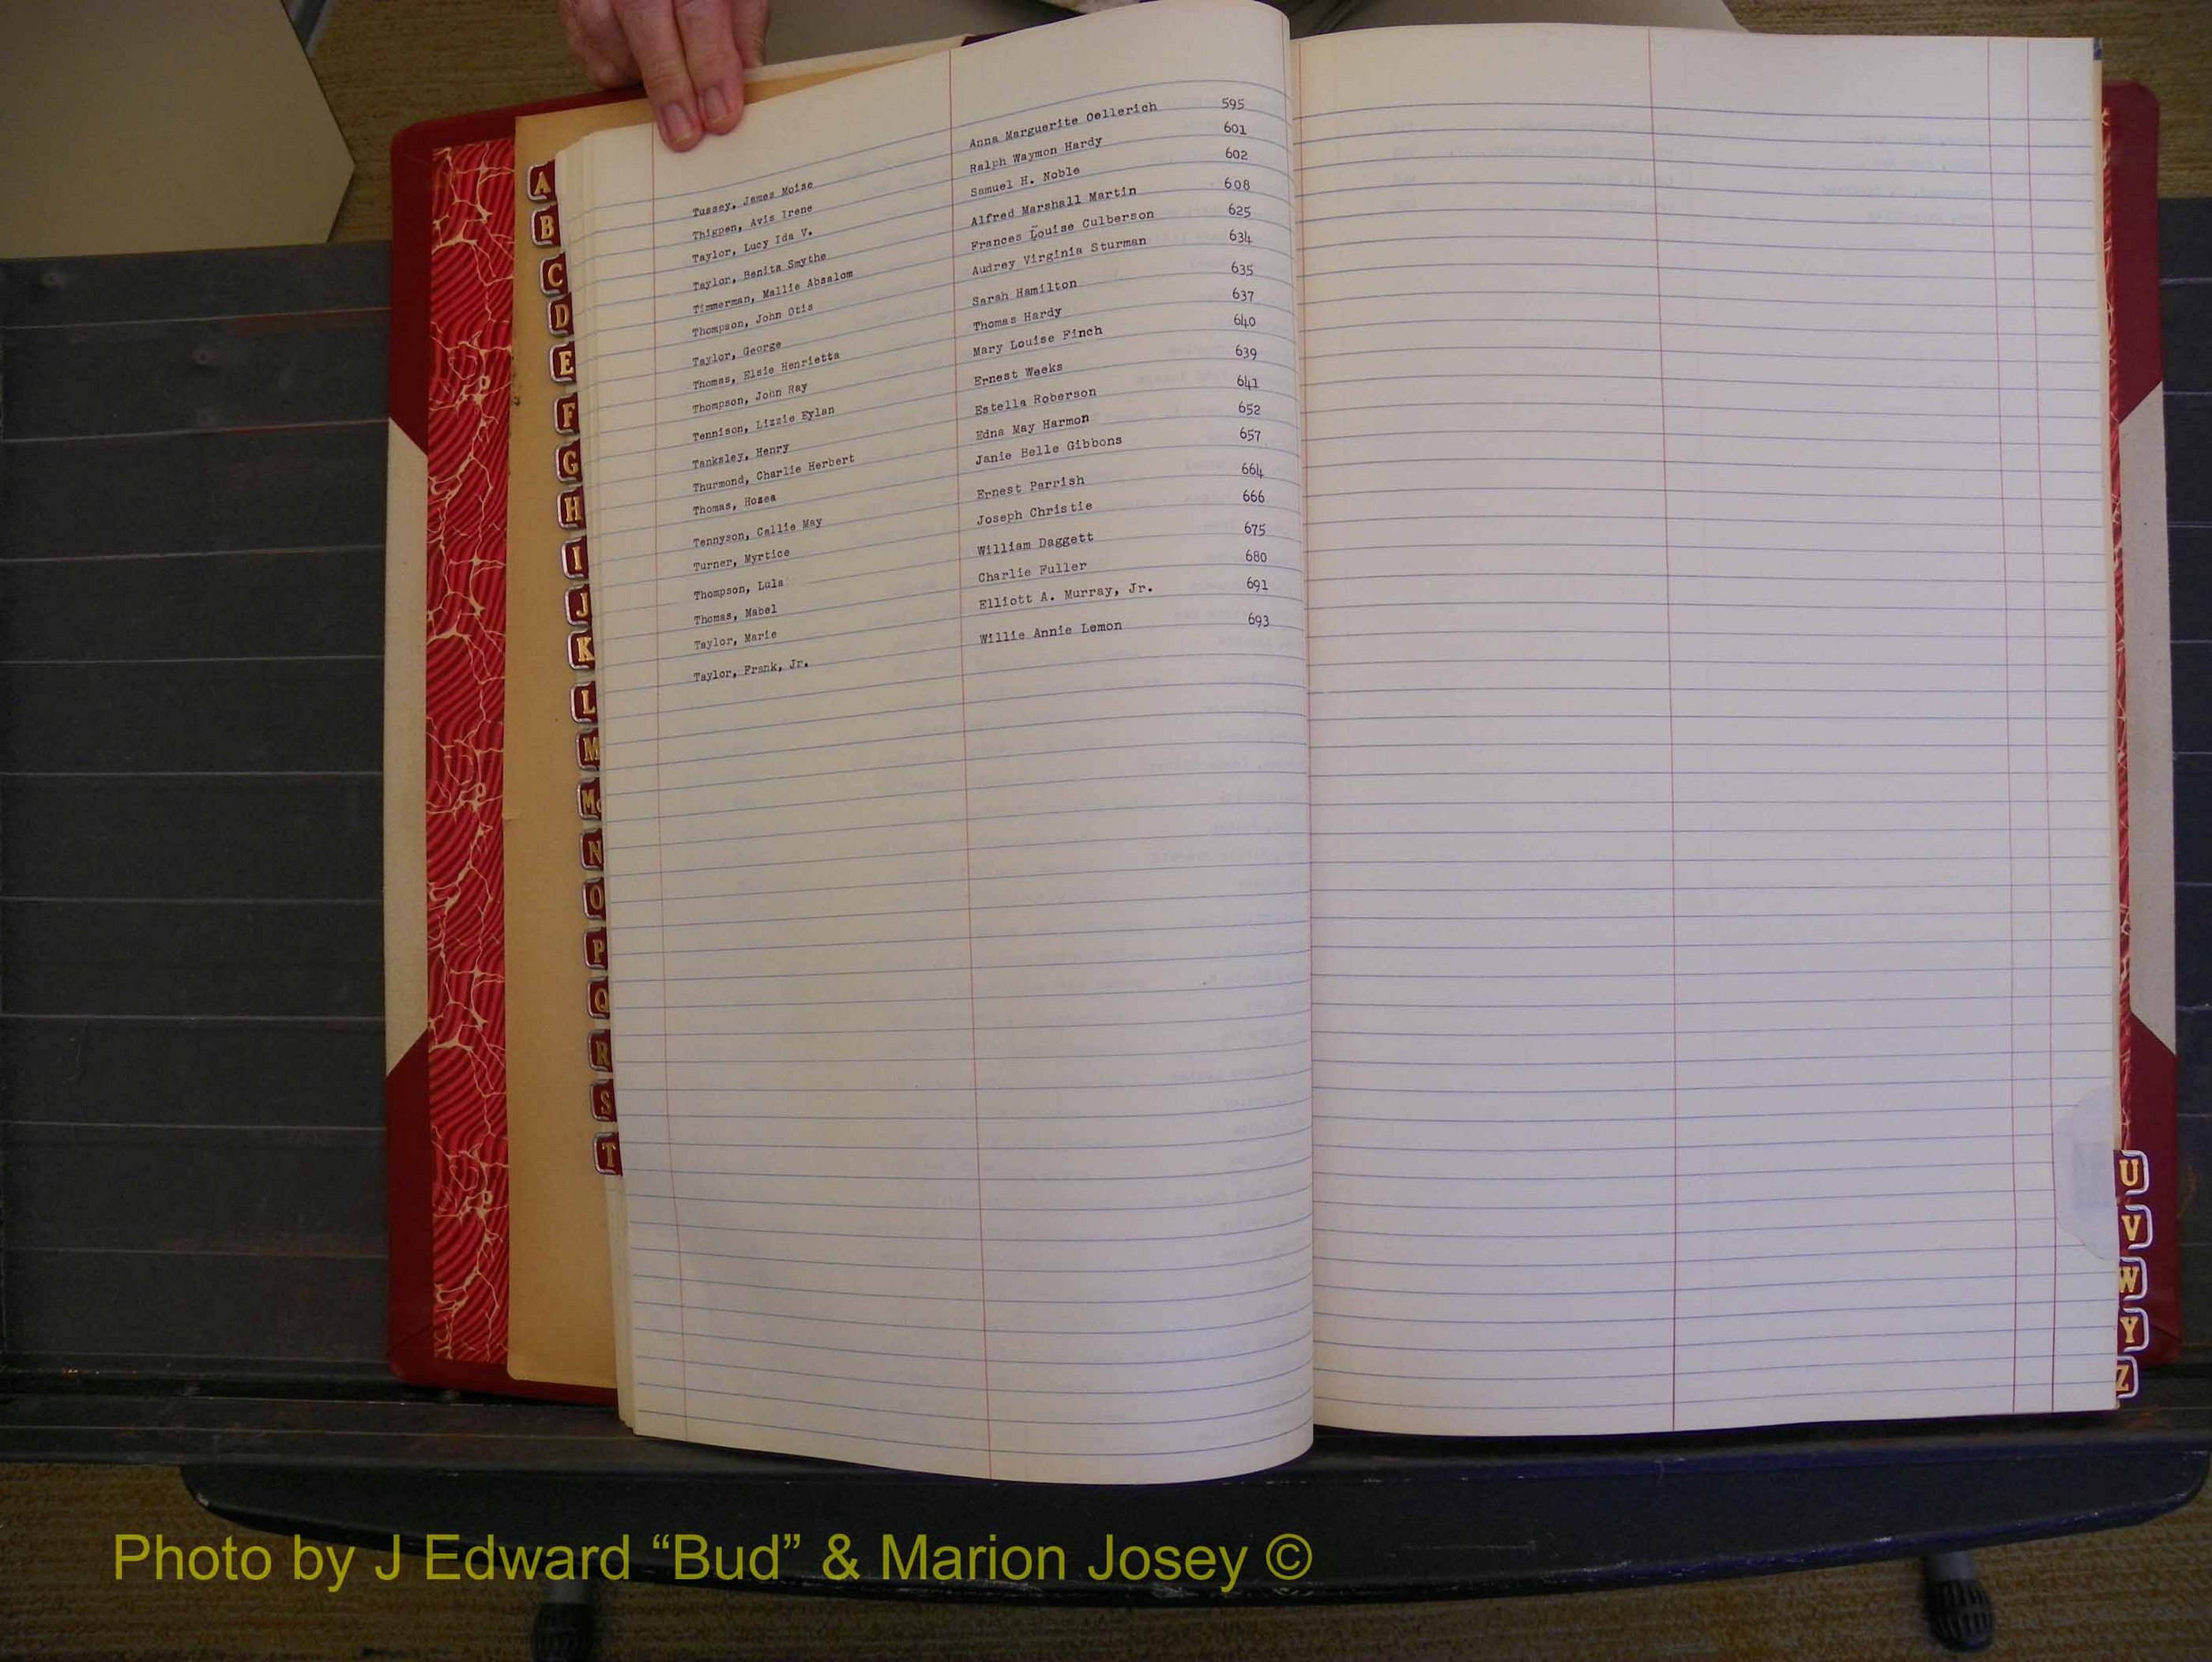 Tussey, James Moise Anna Marguerite Oellerich 595
Thigpen, Avis Irene Ralph Waymon Hardy 601
Taylor, Lucy Ida V. Samuel H. Noble 602
Taylor, Benita Smythe Alfred Marshall Martin 608
Timmerman, Mallie Absalom Frances Louise Culberson 625
Thompson, John Otis Audrey Virginia Sturman 634
Taylor, George Sarah Hamilton 635
Thomas, Elsie Henrietta Thomas Hardy 637
Thompson, John Ray Mary Louise Finch 640
Tennison, Lizzie Eylan Ernest Weeks 639
Tanksley, Henry Estella Roberson 641
Thurmond, Charlie Herbert Edna May Harmon 652
Thomas, Hosea Janie Belle Gibbons 657
Tennyson, Callie May Ernest Parrish 664
Turner, Myrtice Joseph Christie 666
Thompson, Lula William Daggett 675
Thomas, Mabel Charlie Fuller 680
Taylor, Marie Elliott A. Murray, Jr. 691
Taylor, Frank, Jr. Willie Annie Lemon 693
A
B
C
D
E
F
G
H
I
J
K
L
M
Mc
N
O
P
Q
R
S
T
U
V
W
Y
Z
Photo by J Edward “Bud” & Marion Josey ©